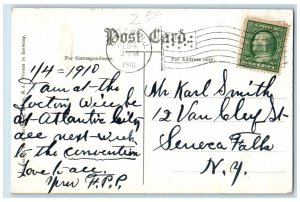 2 50
Post Card.
For Correspondence.
For Address only.
Printed in Germany.
1910
1/4 = 1910
I am at the
Will be
at Atlantic City
all next week
to the convention
Love to all.
Your F.P.P.
Mr Karl Smith
12 Van Cley St
Seneca Falls
N.Y.